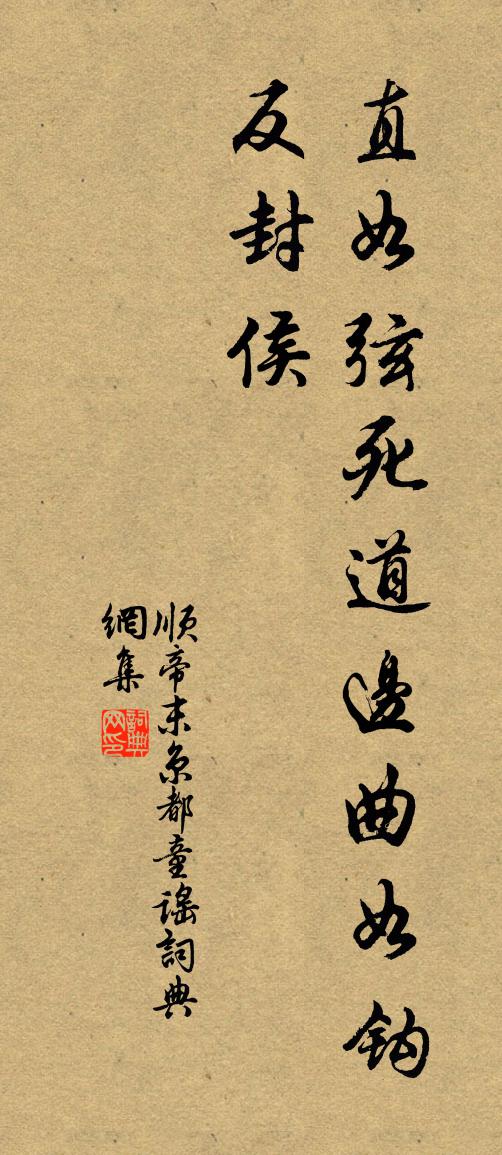 直如弦死道邊曲如鈎
反封侯
順帝末京都童謠詞典
網集
詞典
网印